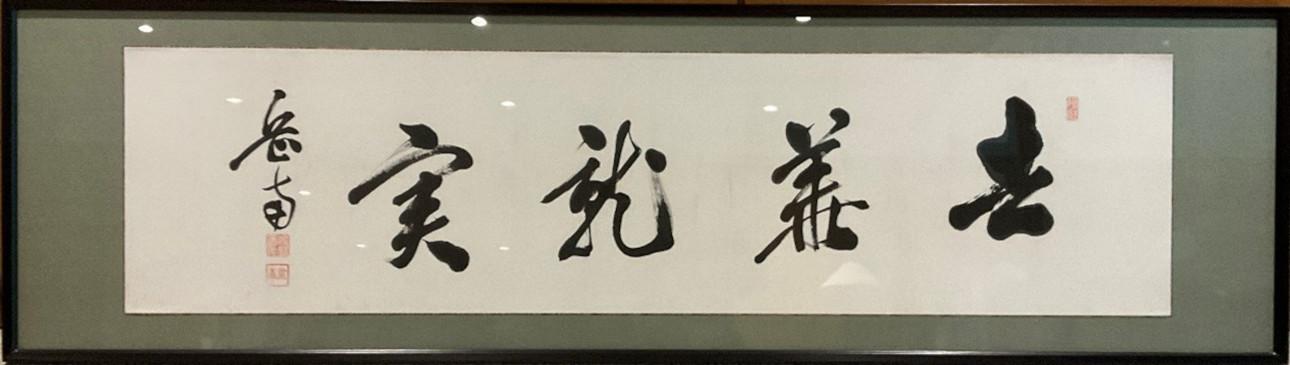 去華就実
岳南